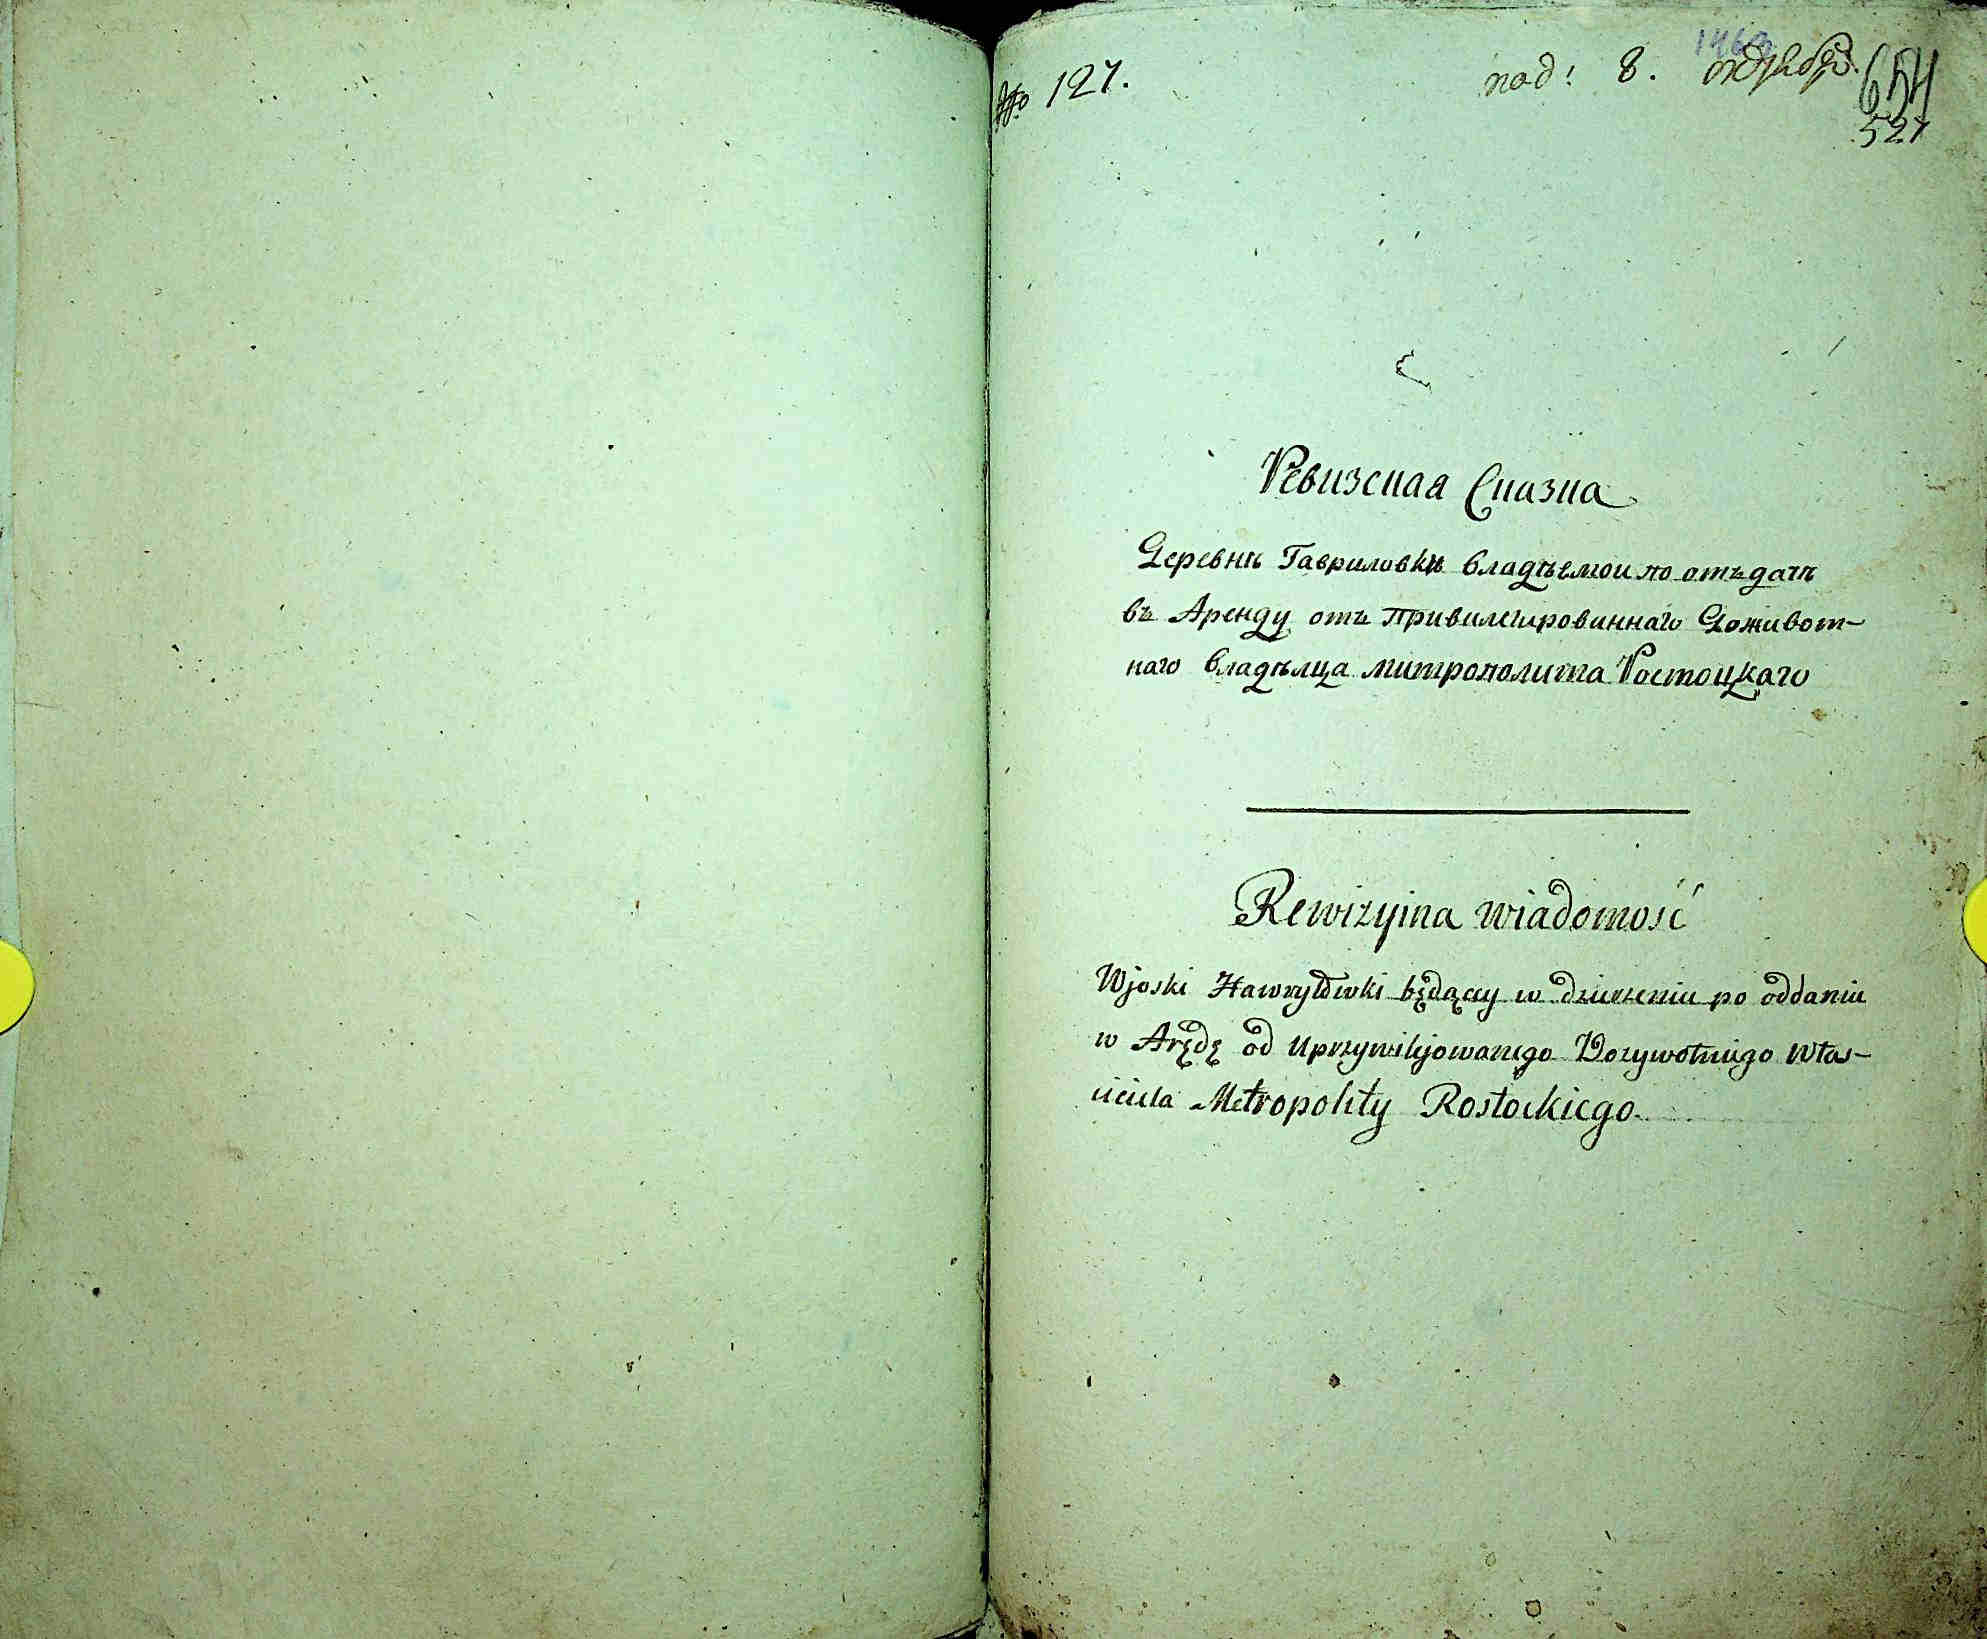 No 127.
под: 8. октября.
654
527
Ревизская Сказка
Деревни Гавриловки владѣемои по отъдачѣ
въ Аренду отъ Привилегированнаго Доживот-
наго владѣлца митрополита Ростоцкаго
Rewizyina wiadomość
Wjoski Hawryłowki będącey w dzierżeniu po oddaniu
w Arędę od uprzywilijowanego Dozywotniego włas-
ciciela Metropolity Rostockiego.